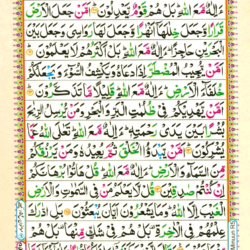 ءَاِلٰهٌ مَّعَ اللّٰهِ بَلْ هُمْ قَوْمٌ يَّعْدِلُوْنَ اَمَّنْ جَعَلَ الْاَرْضَ
قَرَارًا وَّجَعَلَ خِلٰلَهَاۤ اَنْهٰرًا وَّجَعَلَ لَهَا رَوَاسِيَ وَجَعَلَ بَيْنَ
الْبَحْرَيْنِ حَاجِزًا ءَاِلٰهٌ مَّعَ اللّٰهِ بَلْ اَكْثَرُهُمْ لَا يَعْلَمُوْنَ
اَمَّنْ يُّجِيْبُ الْمُضْطَرَّ اِذَا دَعَاهُ وَيَكْشِفُ السُّوْٓءَ وَيَجْعَلُكُمْ
خُلَفَآءَ الْاَرْضِ ءَاِلٰهٌ مَّعَ اللّٰهِ قَلِيْلًا مَّا تَذَكَّرُوْنَ
اَمَّنْ يَّهْدِيْكُمْ فِيْ ظُلُمٰتِ الْبَرِّ وَالْبَحْرِ وَمَنْ يُّرْسِلُ الرِّيٰحَ
بُشْرًا بَيْنَ يَدَيْ رَحْمَتِهٖ ءَاِلٰهٌ مَّعَ اللّٰهِ تَعٰلَى اللّٰهُ عَمَّا
يُشْرِكُوْنَ اَمَّنْ يَّبْدَؤُا الْخَلْقَ ثُمَّ يُعِيْدُهٗ وَمَنْ يَّرْزُقُكُمْ
مِّنَ السَّمَآءِ وَالْاَرْضِ ءَاِلٰهٌ مَّعَ اللّٰهِ قُلْ هَاتُوْا بُرْهَانَكُمْ
اِنْ كُنْتُمْ صٰدِقِيْنَ قُلْ لَّا يَعْلَمُ مَنْ فِي السَّمٰوٰتِ وَالْاَرْضِ
الْغَيْبَ اِلَّا اللّٰهُ وَمَا يَشْعُرُوْنَ اَيَّانَ يُبْعَثُوْنَ بَلِ ادّٰرَكَ
عِلْمُهُمْ فِي الْاٰخِرَةِ بَلْ هُمْ فِيْ شَكٍّ مِّنْهَا بَلْ هُمْ